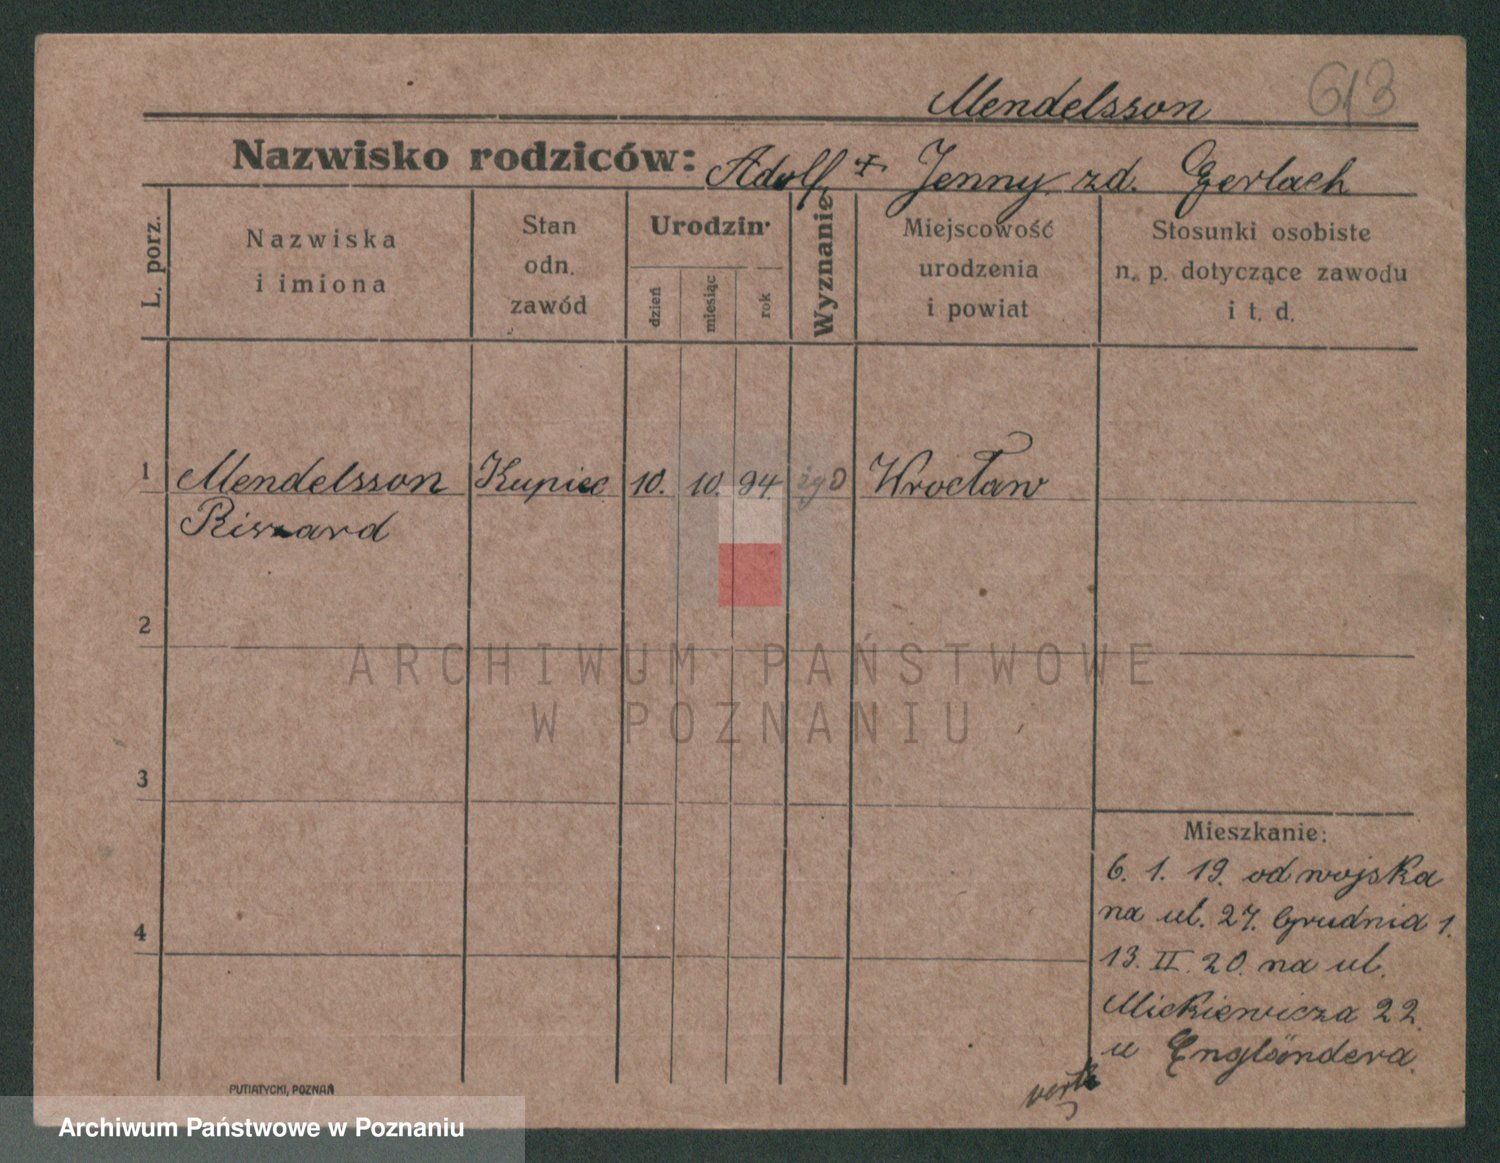 Mendelsson
613
Nazwisko rodziców: Adolf + Jenny zd. Gerlach
L. porz.
Nazwiska
i imiona
Stan
odn.
zawód
Urodzin
dzień
miesiąc
rok
Wyznanie
Miejscowość
urodzenia
i powiat
Stosunki osobiste
n. p. dotyczące zawodu
i t. d.
1 Mendelsson Kupiec 10. 10. 94. żyd Wrocław
Riszard
2
ARCHIWUM PAŃSTWOWE
W POZNANIU
3
Mieszkanie:
6. 1. 19. od wojska
na ul. 27. Grudnia 1.
4
13. II. 20. na ul.
Mickiewicza 22.
u Engländera.
verte
PUTIATYCKI, POZNAŃ
Archiwum Państwowe w Poznaniu